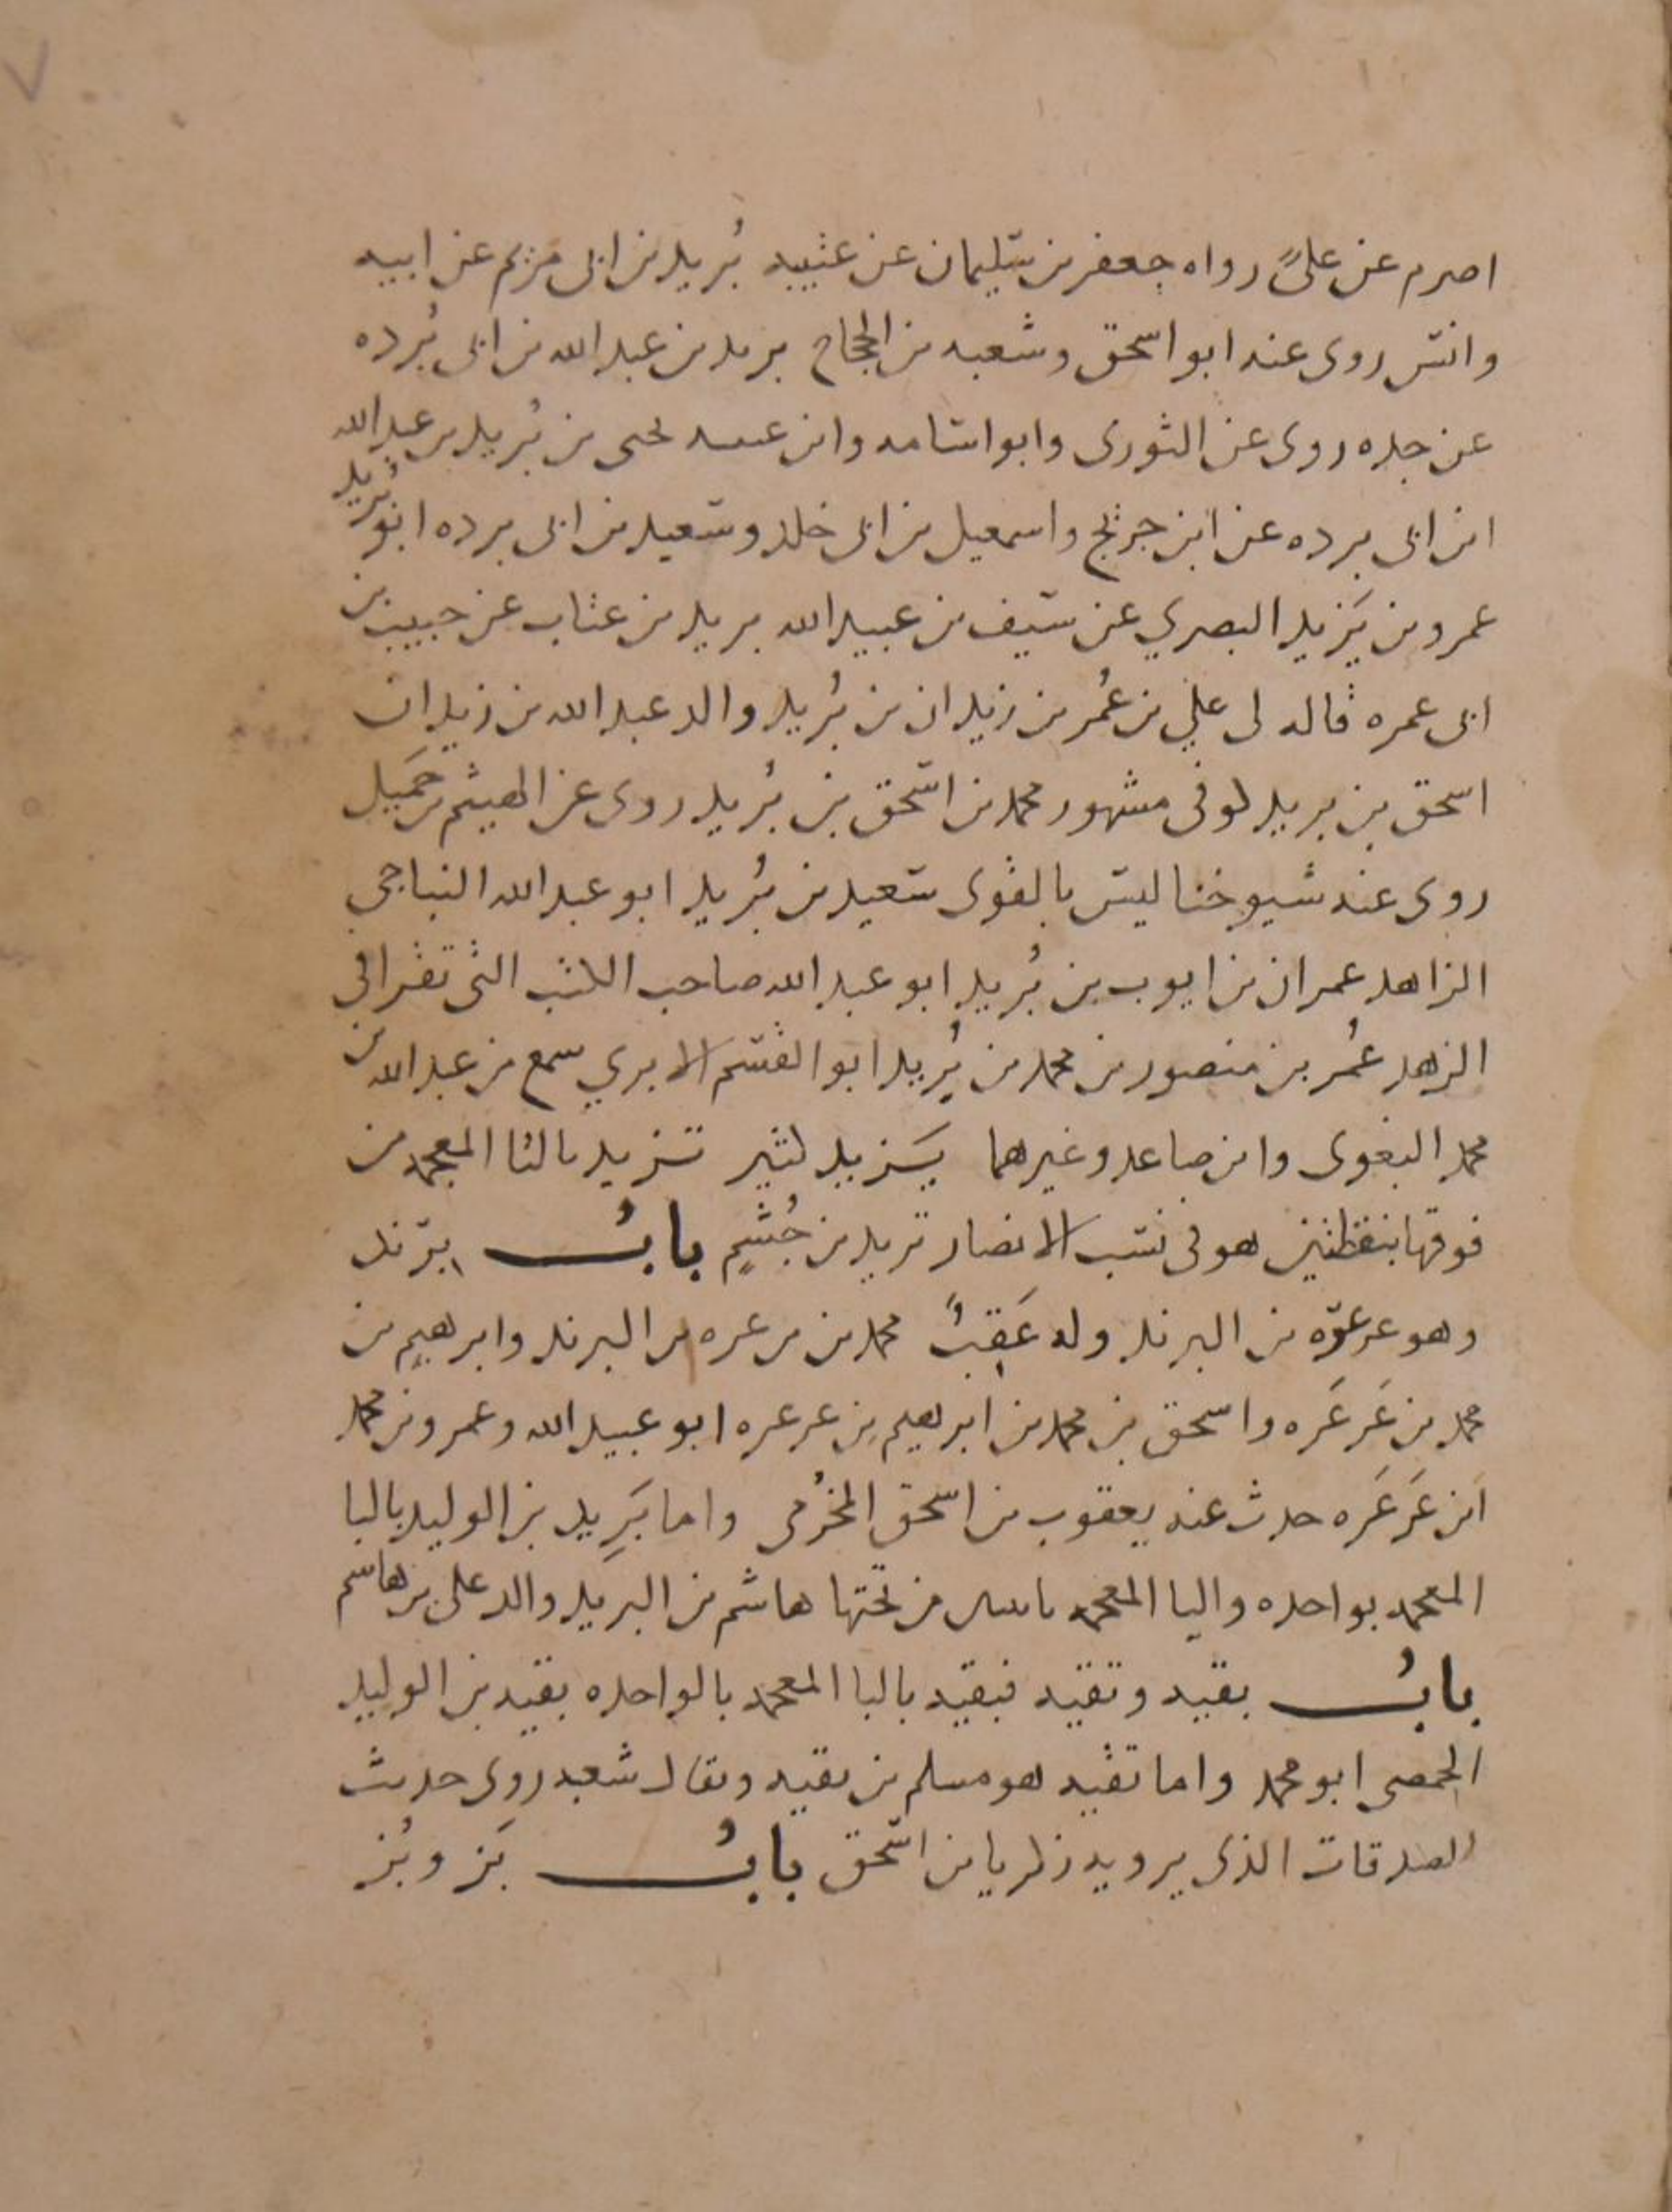 اصرم عن علىً رواه جعفر بن سليمان عن عتيبه بُريد بن ابى مريم عن ابيه
وانس روى عنه ابو اسحق وشعبه بن الحجاج بريد بن عبد الله بن ابى بُرده
عن جده روى عن الثورى وابو اسامه وابن عيينه يحيى بن بُريد بن عبد الله
ابن ابى برده عن ابن جريج واسمعيل بن ابى خلد وسعيد بن ابى برده ابو بُريد
عمرو بن يَزيد البصري عن سيف بن عبيد الله بريد بن عتاب عن حبيب بن
ابى عمره قاله لى علي بن عُمر بن زيدان بن بُريد والد عبد الله بن زيدان
اسحق بن بريد كوفى مشهور محمد بن اسحق بن بُريد روى عن الهيثم بن جَميل
روى عنه شيوخنا ليس بالقوى سعيد بن بُريد ابو عبد الله النباجي
الزاهد عمران بن ايوب بن بُريد ابو عبد الله صاحب الكتب التى تقرا فى
الزهد عُمر بن منصور بن محمد بن بُريد ابو القسم الابري سمع من عبد الله بن
محمد البغوى وابن صاعد وغيرهما يَزيد كثير تزيد بالتا المعجمه من
فوقها بنقطتين هو فى نسب الانصار تزيد بن جُشمٍ بابُ برند
وهو عرعره بن البرند وله عَقِبٌ محمد بن عرعره بن البرند وابرهيم بن
محمد بن عَرعَره واسحق بن محمد بن ابرهيم بن عرعره ابو عبيد الله وعمرو بن محمد
ابن عَرعَره حدث عنه يعقوب بن اسحق المخُرمى واما بَرِيد بن الوليد بالبا
المعجمه بواحده واليا المعجمه باثنين من تحتها هاشم بن البريد والد على بن هاشم
بابُ بقيه وتقيه فبقيه بالبا المعجمه بالواحده بقيه بن الوليد
الحمصى ابو محمد واما تقيه هو مسلم بن تقيه ويقال شعبه روى حديث
الصدقات الذى يرويه زكريا بن اسحق بابُ بَز وبُز